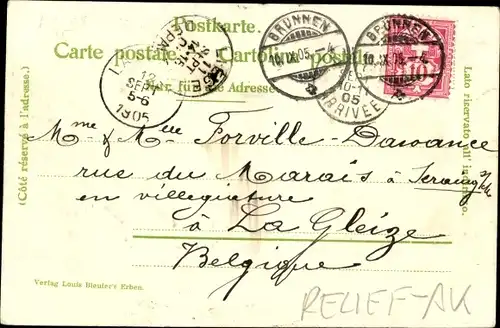 Postkarte.
Carte postale. Cartolina postale.
Nur für die Adresse.
(Côté réservé à l'adresse.)
Lato riservato all' indirizzo.
BRUNNEN
10.IX.05.-4
BRUNNEN
10.IX.05.-4
10
12
SEPT
5-6
1905
10-11
05
ARRIVÉE
Mme & Mlle Forville-Dawance
rue du Marais à Seraing s/Me
en villégiature
à La Gleize
Belgique
Verlag Louis Bleuler's Erben.
RELIEF-AK